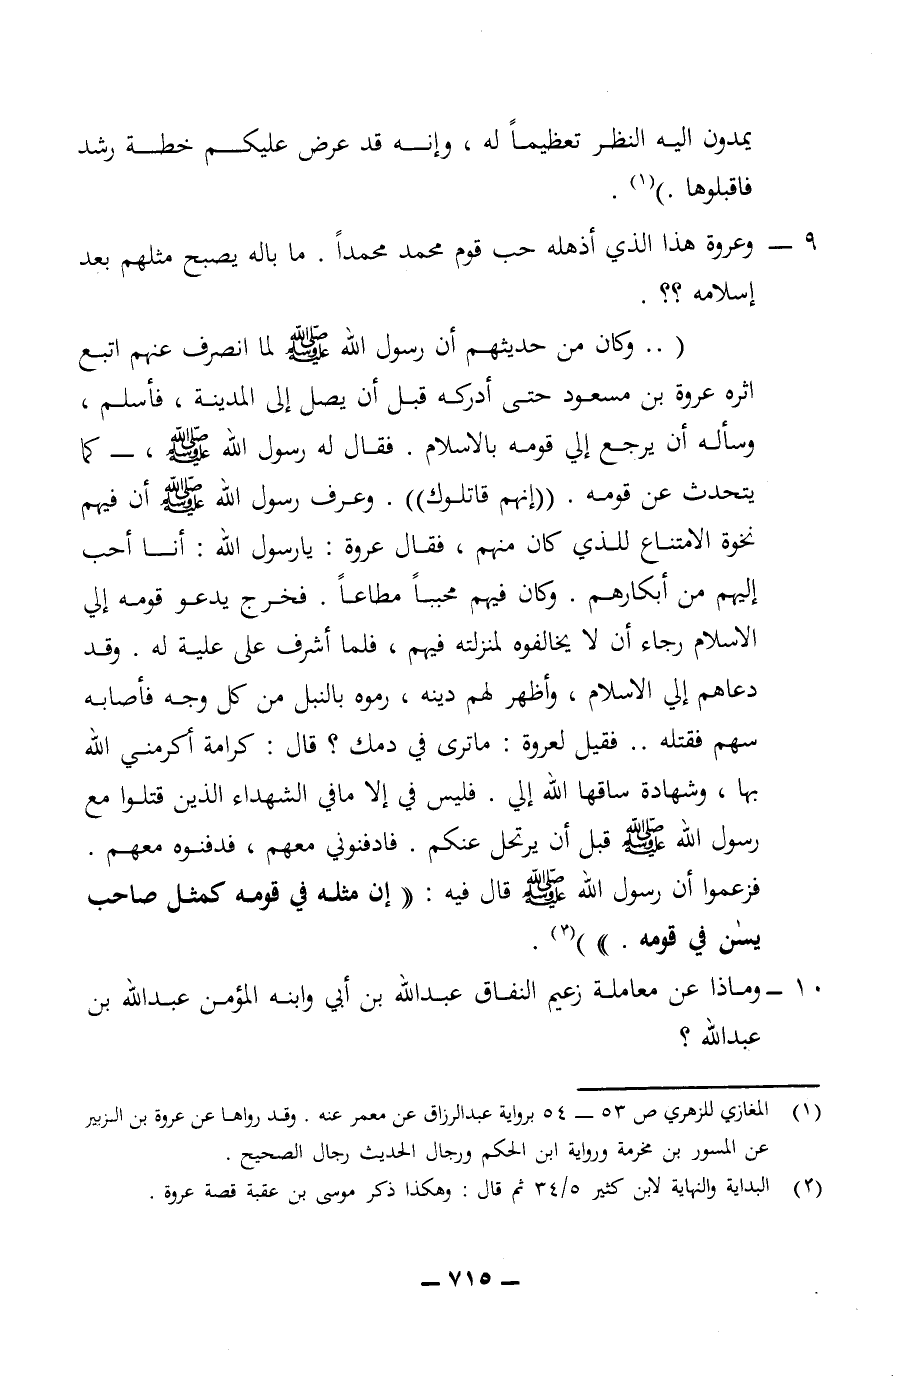 يمدون اليه النظر تعظيماً له ، وإنه قد عرض عليكم خطة رشد
فاقبلوها .)(١) .
٩ ـ وعروة هذا الذي أذهله حب قوم محمد محمداً . ما باله يصبح مثلهم بعد
إسلامه ؟؟ .
( .. وكان من حديثهم أن رسول الله ﷺ لما انصرف عنهم اتبع
اثره عروة بن مسعود حتى أدركه قبل أن يصل إلى المدينة ، فأسلم ،
وسأله أن يرجع إلي قومه بالاسلام . فقال له رسول الله ﷺ ، ـ كما
يتحدث عن قومه . ((إنهم قاتلوك)) . وعرف رسول الله ﷺ أن فيهم
نخوة الامتناع للذي كان منهم ، فقال عروة : يارسول الله : أنا أحب
إليهم من أبكارهم . وكان فيهم محبباً مطاعاً . فخرج يدعو قومه إلي
الاسلام رجاء أن لا يخالفوه لمنزلته فيهم ، فلما أشرف على علية له . وقد
دعاهم إلي الاسلام ، وأظهر لهم دينه ، رموه بالنبل من كل وجه فأصابه
سهم فقتله .. فقيل لعروة : ماترى في دمك ؟ قال : كرامة أكرمني الله
بها ، وشهادة ساقها الله إلي . فليس في إلا مافي الشهداء الذين قتلوا مع
رسول الله ﷺ قبل أن يرتحل عنكم . فادفنوني معهم ، فدفنوه معهم .
فزعموا أن رسول الله ﷺ قال فيه : « إن مثله في قومه كمثل صاحب
يسٰن في قومه . » )(٢) .
١٠ ـ وماذا عن معاملة زعيم النفاق عبدالله بن أبي وابنه المؤمن عبدالله بن
عبدالله ؟
(١) المغازي للزهري ص ٥٣ ـ ٥٤ برواية عبدالرزاق عن معمر عنه . وقد رواها عن عروة بن الزبير
عن المسور بن مخرمة ورواية ابن الحكم ورجال الحديث رجال الصحيح .
(٢) البداية والنهاية لابن كثير ٣٤/٥ ثم قال : وهكذا ذكر موسى بن عقبة قصة عروة .
ـ ٧١٥ ـ